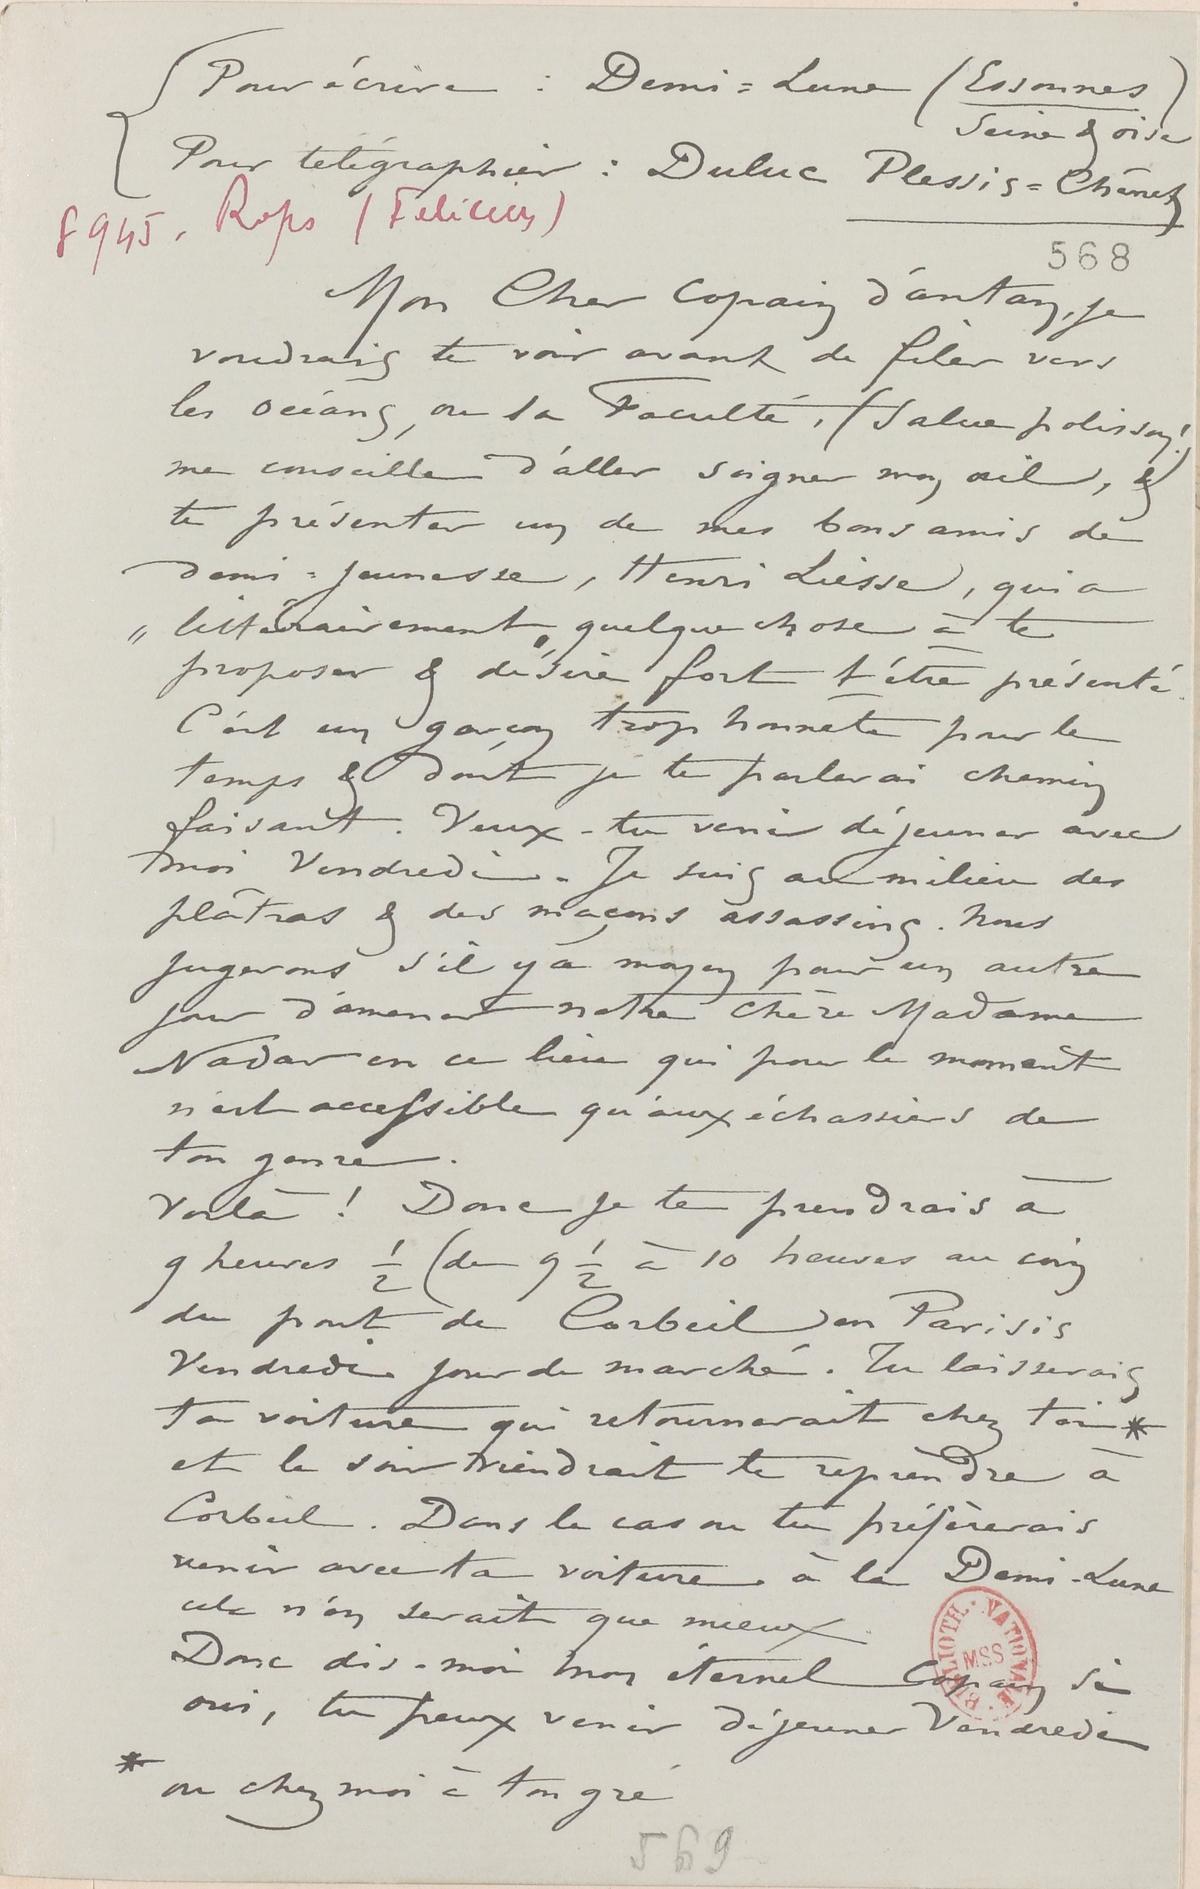 Pour écrire : Demi=Lune (Essonnes)
Seine & oise
Pour télégraphier : Duluc Plessis=Chênet
8945. Rops (Félicien)
568
Mon Cher Copain d'antan, je
voudrais te voir avant de filer vers
les océans, ou la Faculté, (Salue polisson!)
me conseille d'aller soigner mon œil, &
te présenter un de mes bons amis de
demi=jeunesse, Henri Liesse, qui a
"littérairement" quelque chose à te
proposer & désire fort t'être présenté.
C'est un garçon trop honnête pour le
temps & dont je te parlerai chemin
faisant. Veux-tu venir déjeuner avec
moi Vendredi. Je suis au milieu des
plâtras & des maçons assassins. Nous
jugerons s'il y a moyen pour un autre
jour d'amener notre chère Madame
Nadar en ce lieu qui pour le moment
n'est accessible qu'aux échassiers de
ton genre.
Voilà ! Donc je te prendrais à
9 heures 1/2 (de 9 1/2 à 10 heures au coin
du pont de Corbeil en Parisis
Vendredi jour de marché. Tu laisserais
ta voiture qui retournerait chez toi *
et le soir viendrait te reprendre à
Corbeil. Dans le cas ou tu préférerais
venir avec ta voiture à la Demi-Lune
cela n'en serait que mieux
Donc dis-moi mon éternel Copain si
oui, tu peux venir déjeuner Vendredi
* ou chez moi à ton gré
BIBLIOTH. NATIONALE MSS
569